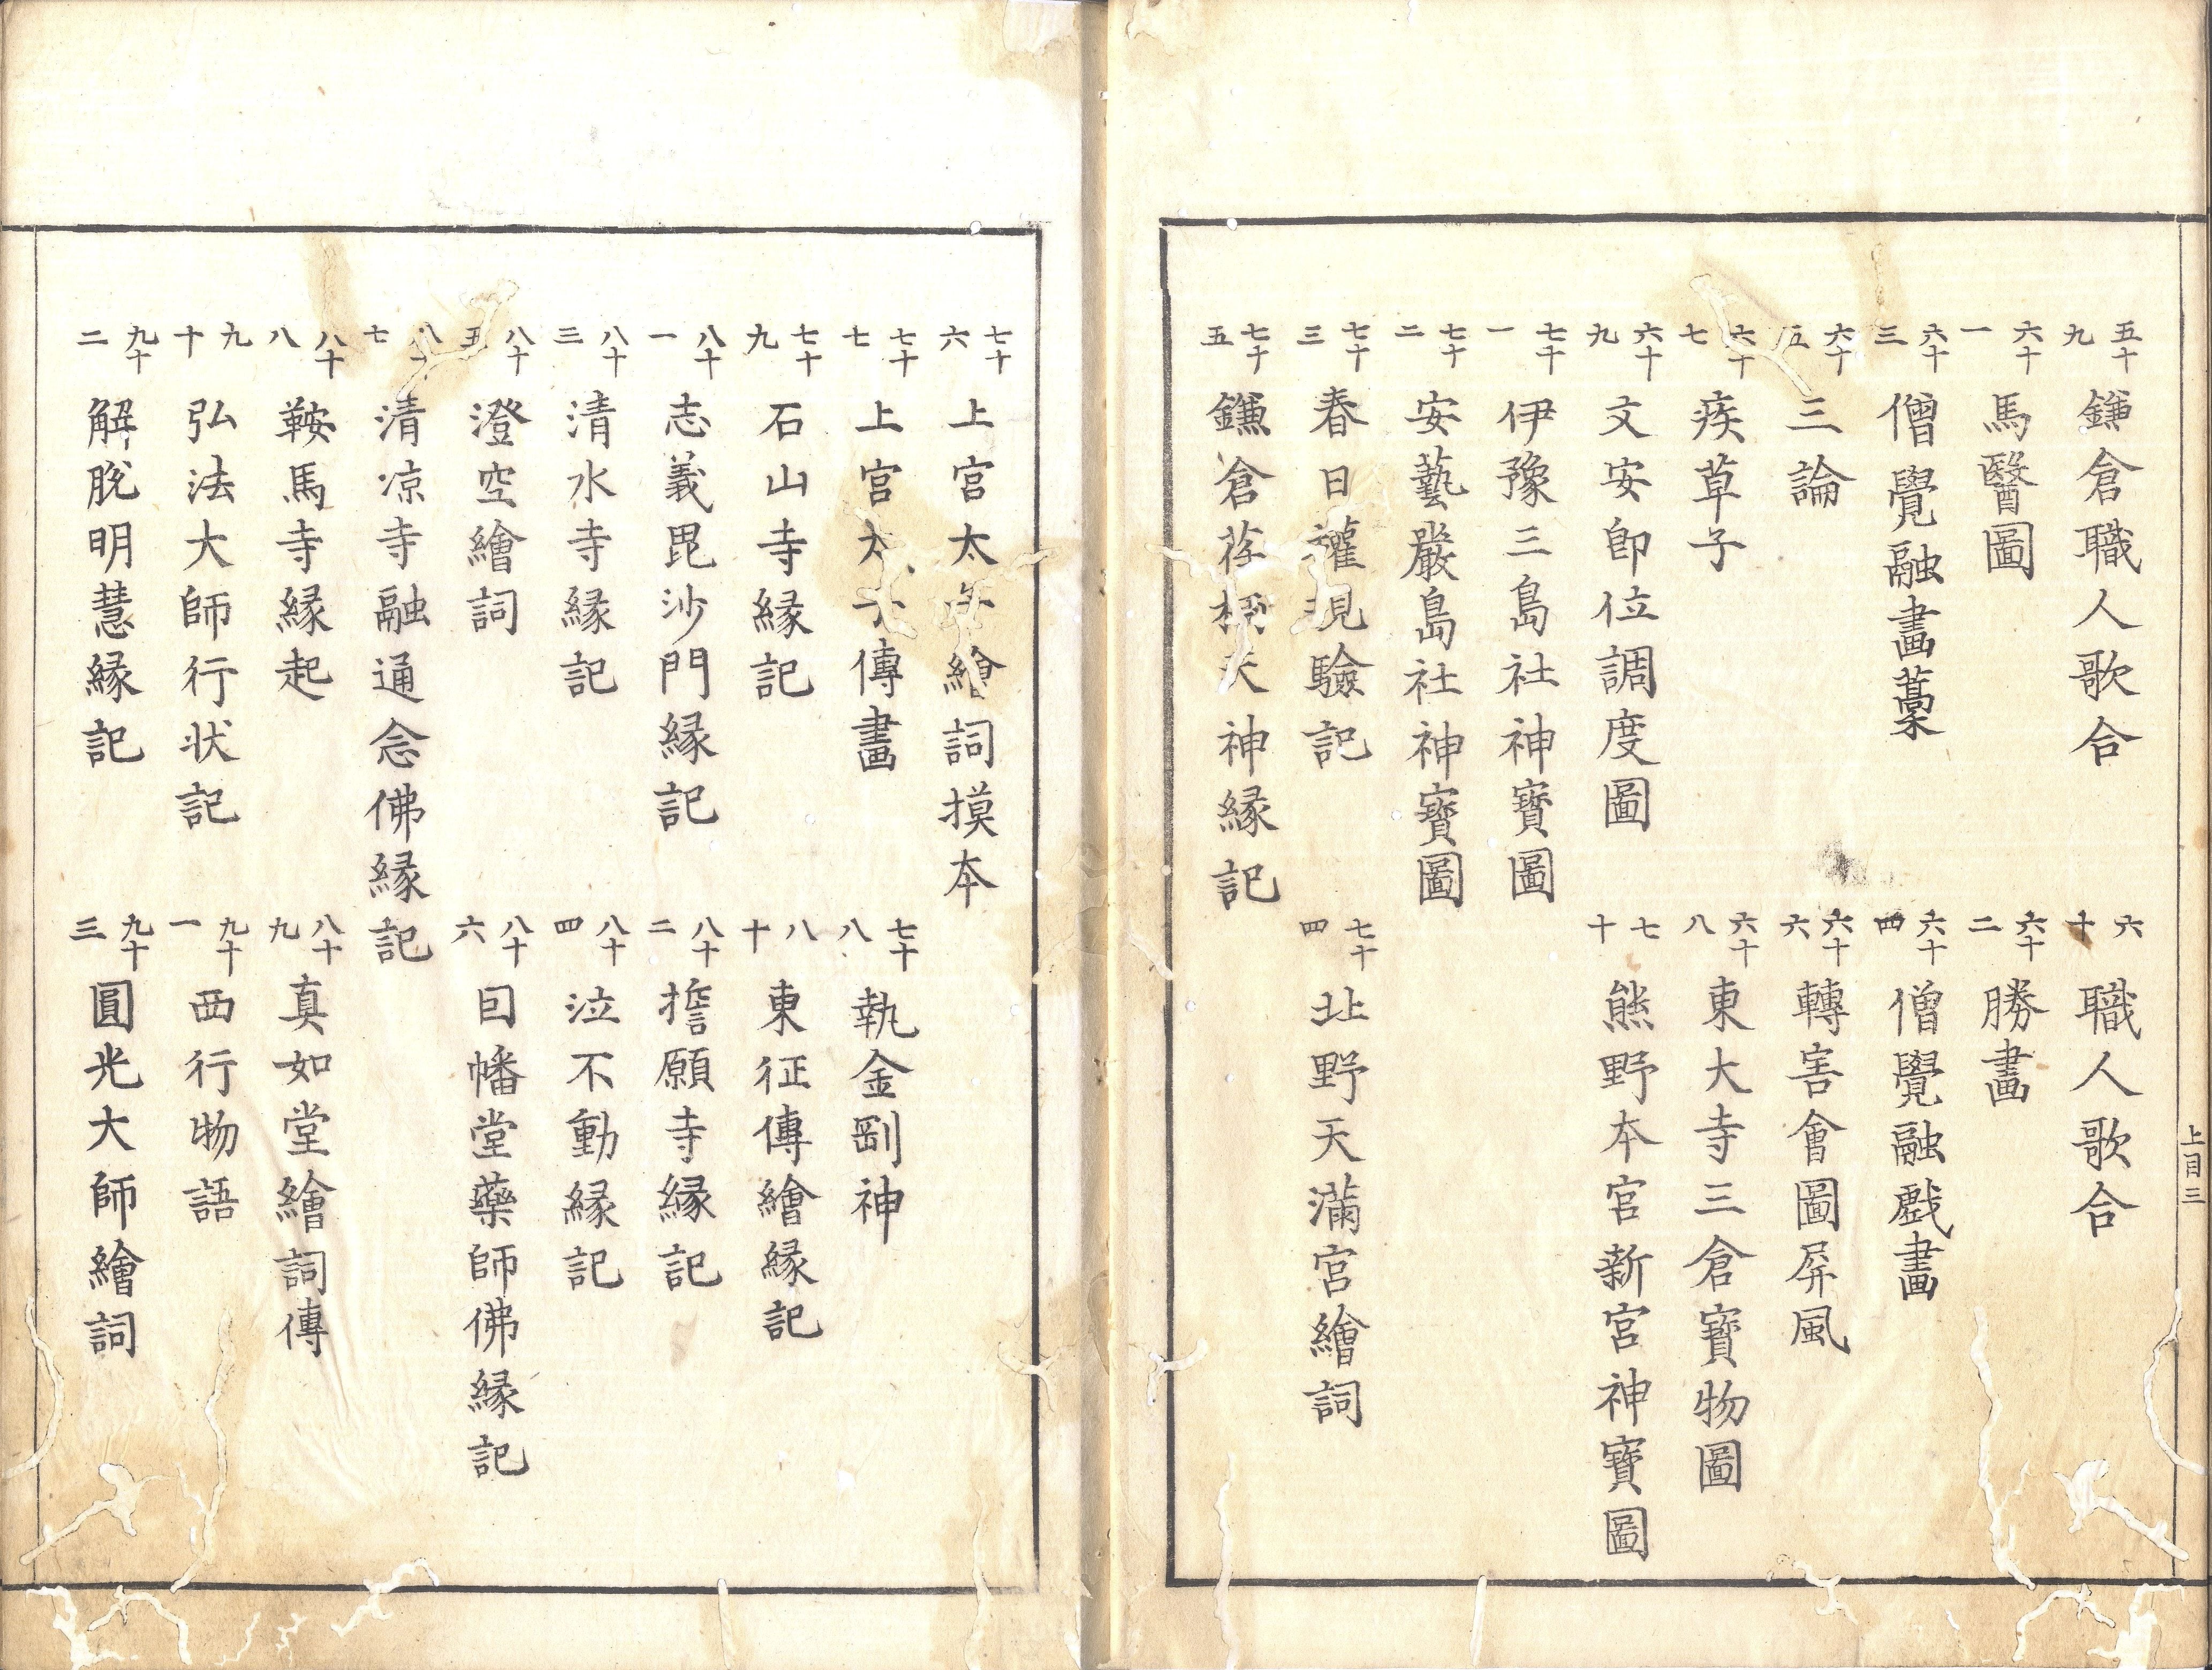 五十九 鎌倉職人歌合
六十 職人歌合
六十一 馬醫圖
六十二 勝畫
六十三 僧覺融畫藁
六十四 僧覺融戲畫
六十五 三論
六十六 轉害會圖屏風
六十七 疾草子
六十八 東大寺三倉寶物圖
六十九 文安卽位調度圖
七十 熊野本宮新宮神寶圖
七十一 伊豫三島社神寶圖
七十二 安藝嚴島社神寶圖
七十三 春日權現驗記
七十四 北野天滿宮繪詞
七十五 鎌倉荏柄天神緣記
上目三
七十六 上宮太子繪詞摸本
七十七 上宮太子傳畫
七十八 執金剛神
七十九 石山寺緣記
八十 東征傳繪緣記
八十一 志義毘沙門緣記
八十二 擔願寺緣記
八十三 清水寺緣記
八十四 泣不動緣記
八十五 澄空繪詞
八十六 因幡堂藥師佛緣記
八十七 清凉寺融通念佛緣記
八十八 鞍馬寺緣起
八十九 真如堂繪詞傳
九十 弘法大師行状記
九十一 西行物語
九十二 解脫明慧緣記
九十三 圓光大師繪詞